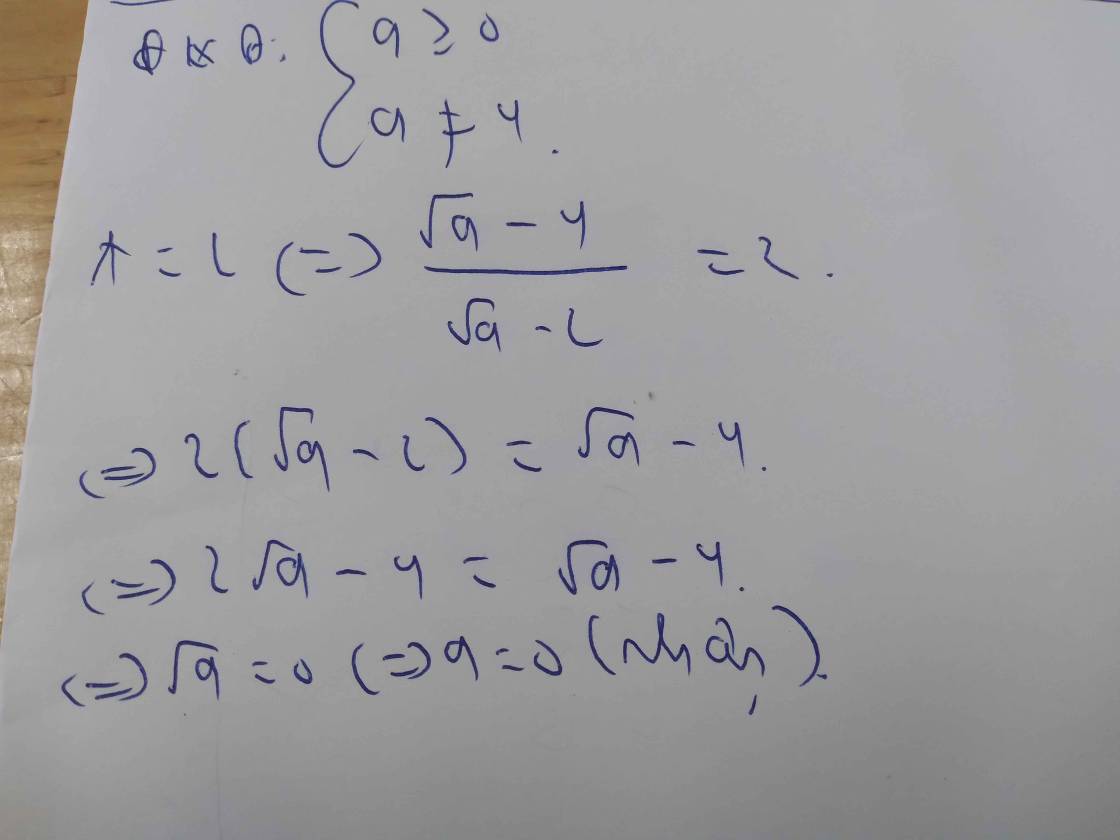 ĐKXĐ: { a ≥ 0
a ≠ 4.
A = 2 (=) (√a - 4)/(√a - 2) = 2.
(=) 2(√a - 2) = √a - 4.
(=) 2√a - 4 = √a - 4.
(=) √a = 0 (=) a = 0 (nhận).